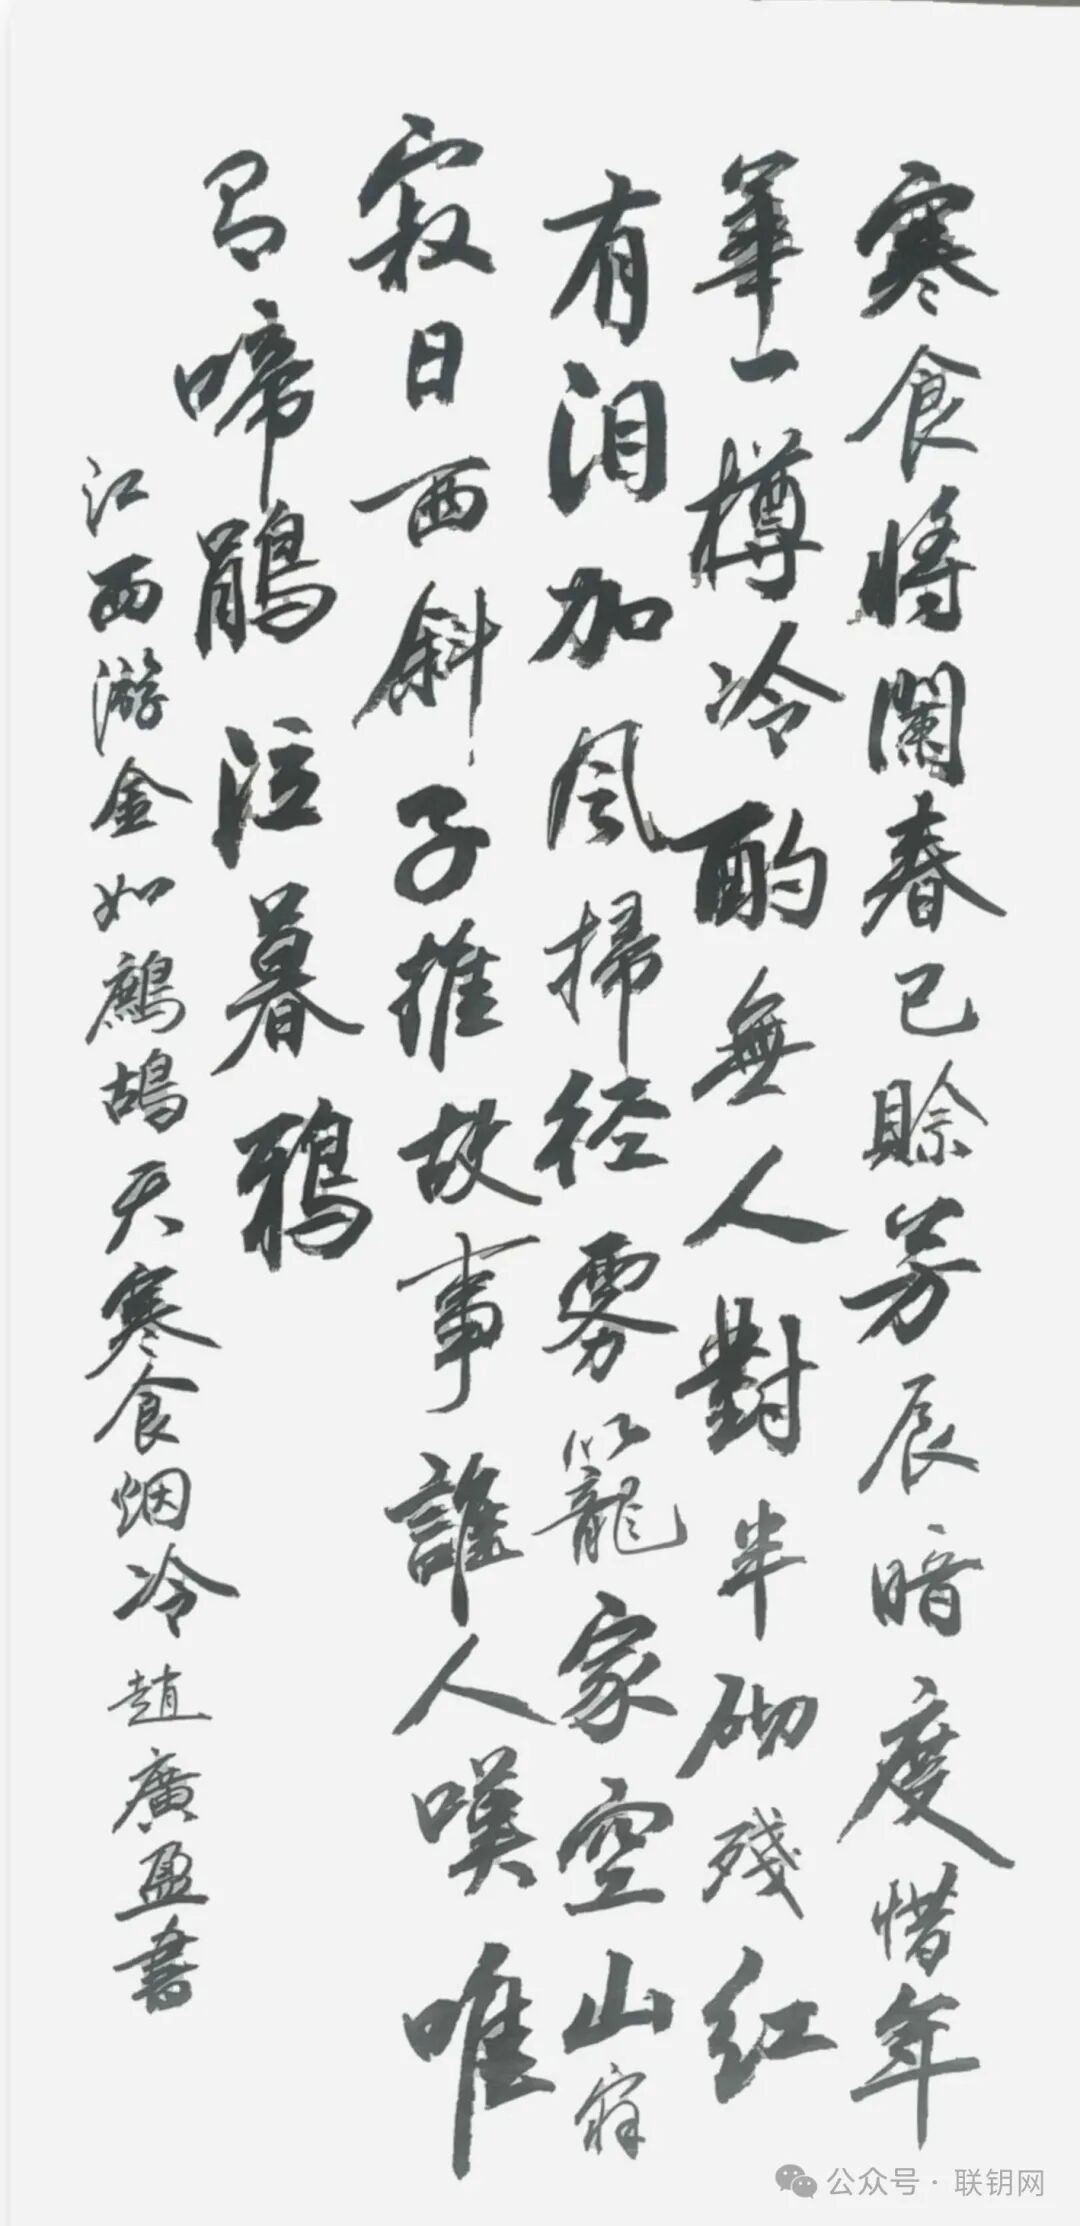 寒食將闌春已賒芳辰暗度惜年
華一樽冷酌無人對半砌殘紅
有泪加風掃径雾籠家空山寂
寂日西斜子推故事誰人嘆唯
啼鵑泣暮鴉
江西游金如鷓鴣天寒食烟冷趙廣盈書
公众号·联钥网